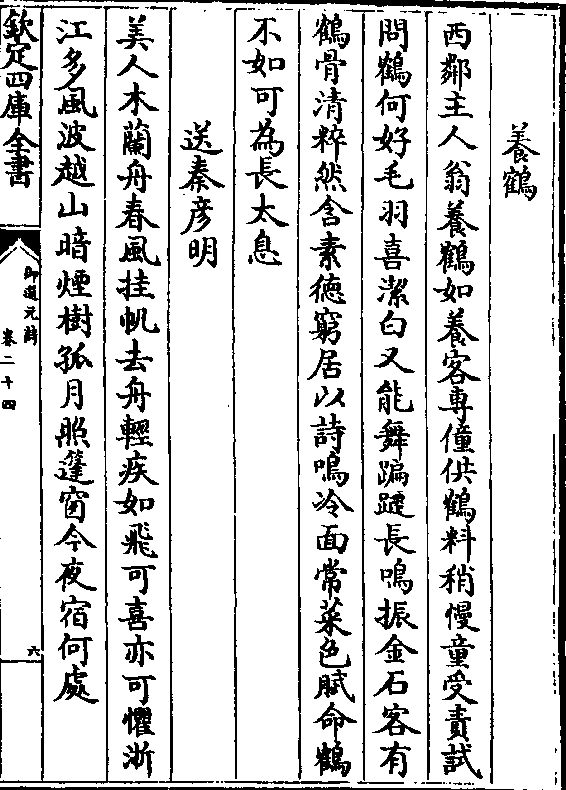 養鶴
西鄰主人翁養鶴如養客專僮供鶴料稍慢童受責試
問鶴何好毛羽喜潔白又能舞蹁躚長鳴振金石客有
鶴骨清粹然含素德窮居以詩鳴冷面常菜色賦命鶴
不如可為長太息
送秦彦明
美人木蘭舟春風挂帆去舟輕疾如飛可喜亦可懼浙
江多風波越山暗煙樹孤月照篷窗今夜宿何處
欽定四庫全書
御選元詩
卷二十四
六